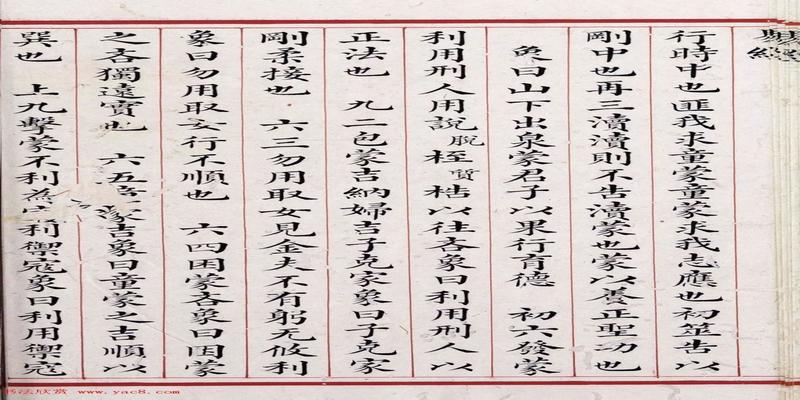 易經
行時中也匪我求童蒙童蒙求我志應也初筮告以
剛中也再三瀆瀆則不告瀆蒙也蒙以養正聖功也
象曰山下出泉蒙君子以果行育德 初六發蒙
利用刑人用說脫桎質梏以往吝象曰利用刑人以
正法也 九二包蒙吉納婦吉子克家象曰子克家
剛柔接也 六三勿用取女見金夫不有躬无攸利
象曰勿用取女行不順也 六四困蒙吝象曰困蒙
之吝獨遠實也 六五蒙吉象曰童蒙之吉順以
巽也 上九擊蒙不利為利禦寇象曰利用禦寇
书法欣赏 www.yac8.com